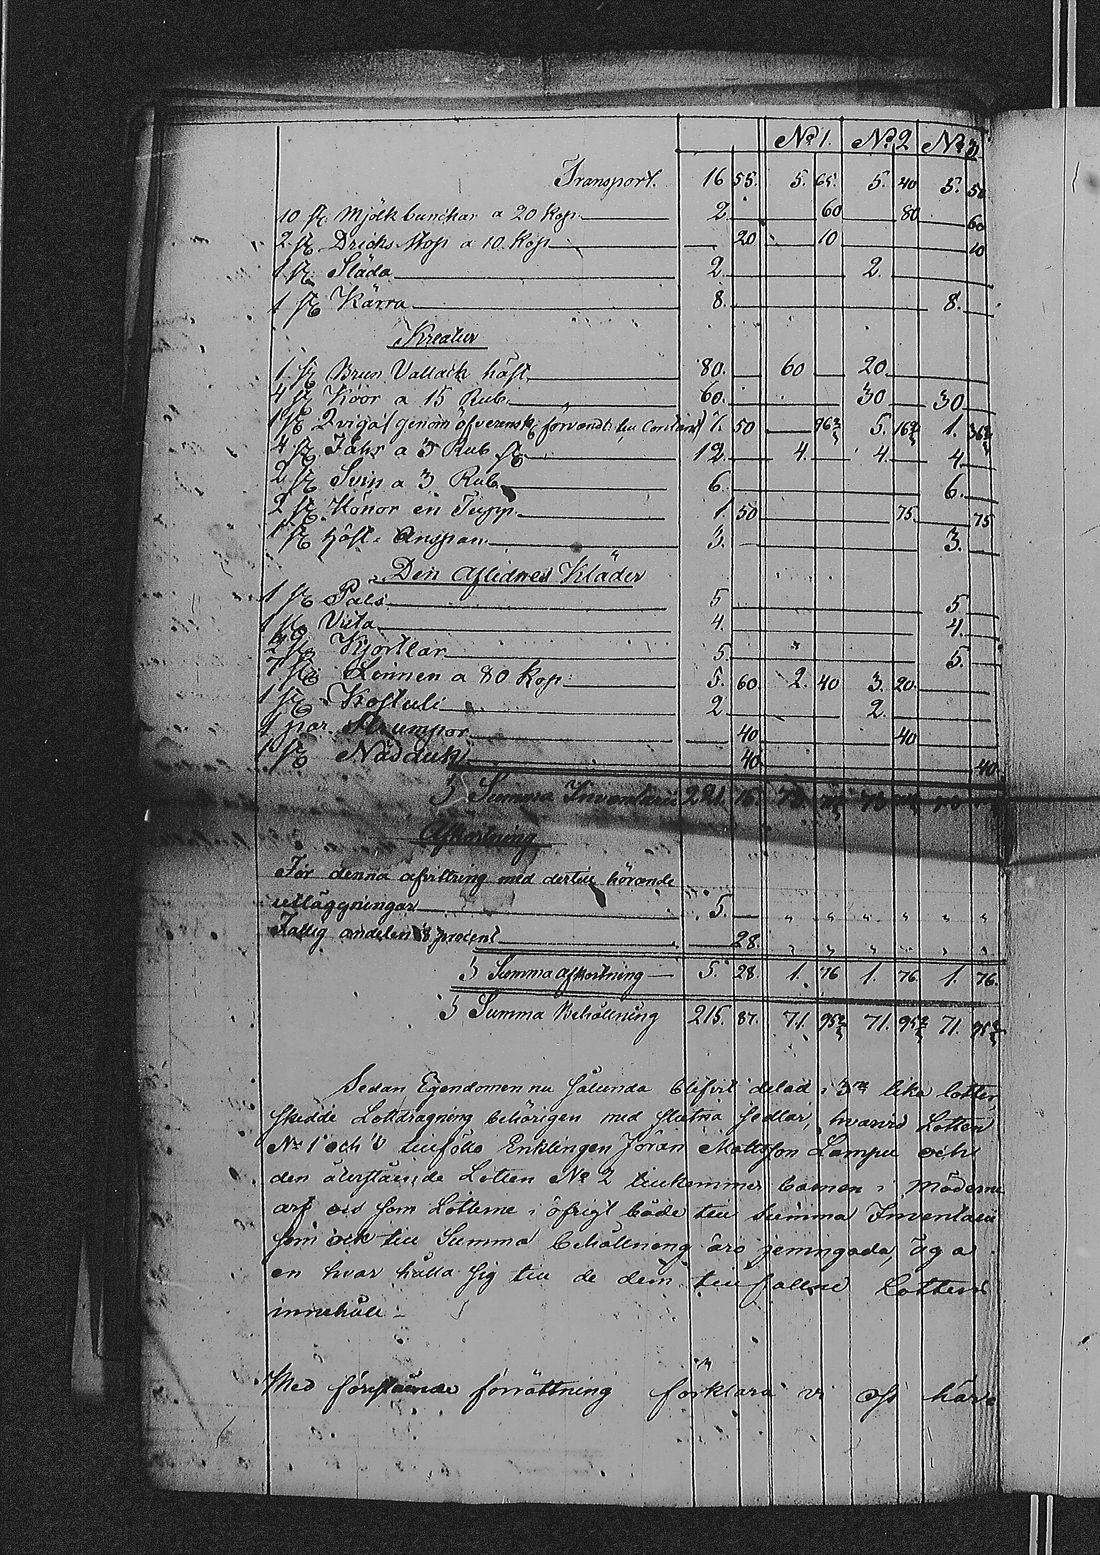 No 1. No 2 No 3
Transport. 16 55. 5. 65. 5. 40 5. 50
10 st. Mjölk bunckar a 20 Kop. 2. 60 80 60
2 st. Dricks Stop a 10 Kop 20 10 10
1 st. Släda 2. 2.
1 st. Kärra 8. 8.
Kreatur
1 st. Brun Vallack häst 80. 60 20
4 st. Koor a 15 Rub. 60. 30 30
1 st. Qviga (genom öfverensk. förvandt. till Contant) 7. 50 96 2/3 5. 16 2/3 1. 36 2/3
4 st. Fåhr a 3 Rub st. 12. 4. 4. 4
2 st. Svin a 3 Rub. 6. 6.
2 st. Hönor en Tupp 1. 50 75. 75
1 st. Häst Anspan 3. 3.
Den Aflidnes Kläder
1 st. Pals 5 5
1 st. Vista 4. 4.
2 st. Kjortlar 5. 5.
7 st. Linnen a 80 Kop. 5. 60. 2. 40 3. 20.
1 st. Kostuli 2. 2.
1 par. Strumpor 40 40
1 st. Näsduk 40 40
Summa Inventarii 221. 15.
Afkortning
För denna afvittring med dertill hörande
utläggningar 5. " " " " " "
Fattig andelen 1/8 procent 28. " " " " " "
Summa afkortning 5. 28. 1. 76 1. 76 1. 76.
Summa Behållning 215. 87. 71. 95 2/3 71. 95 2/3 71. 95 2/3
Sedan Egendomen nu sålunda blifvit delad i 3ne lika lotter,
skedde Lottdragning behörigen med slutna sedlar, hvarvid Lotten
No 1 och 3 tillföllo Enklingen Jöran Mattsson Lampu och
den återstående Lotten No 2 tillkommer barnen i Möderne
arf och som Lotterne i öfrigt både till Summa Inventarii
som ock till Summa behållning äro jemngoda, äga
en hvar hålla sig till de dem tillfallne Lottens
innehåll.
Med förestående förrättning förklara vi oss härv